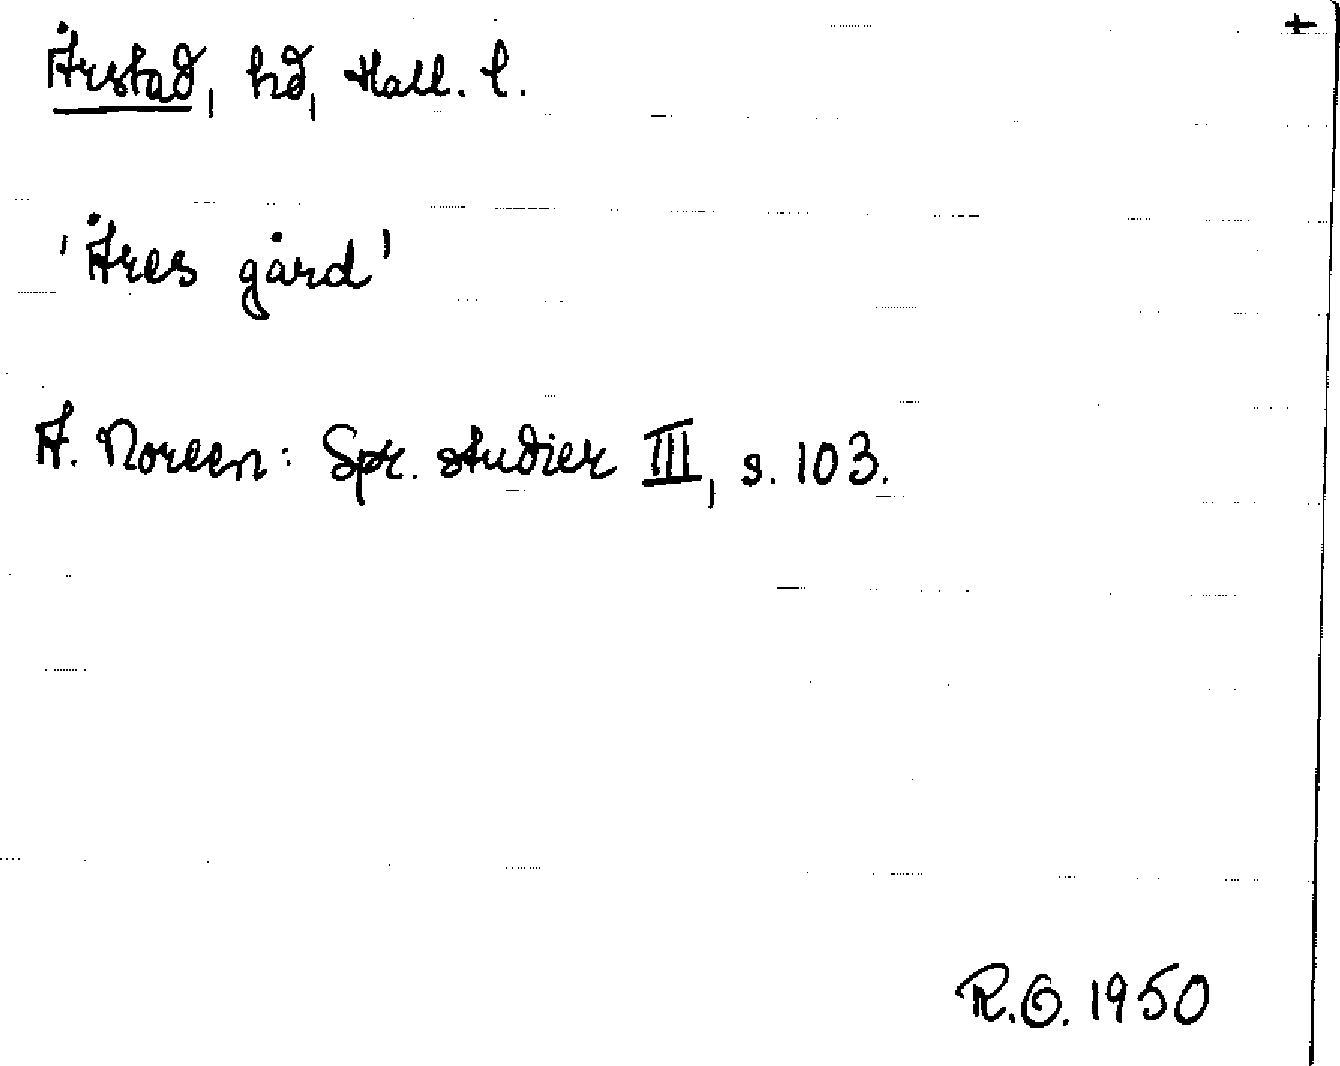 +
Årstad, hd, Hall. l.
'Åres gård'
A. Noreen: Spr. studier III, s. 103.
R.O. 1950